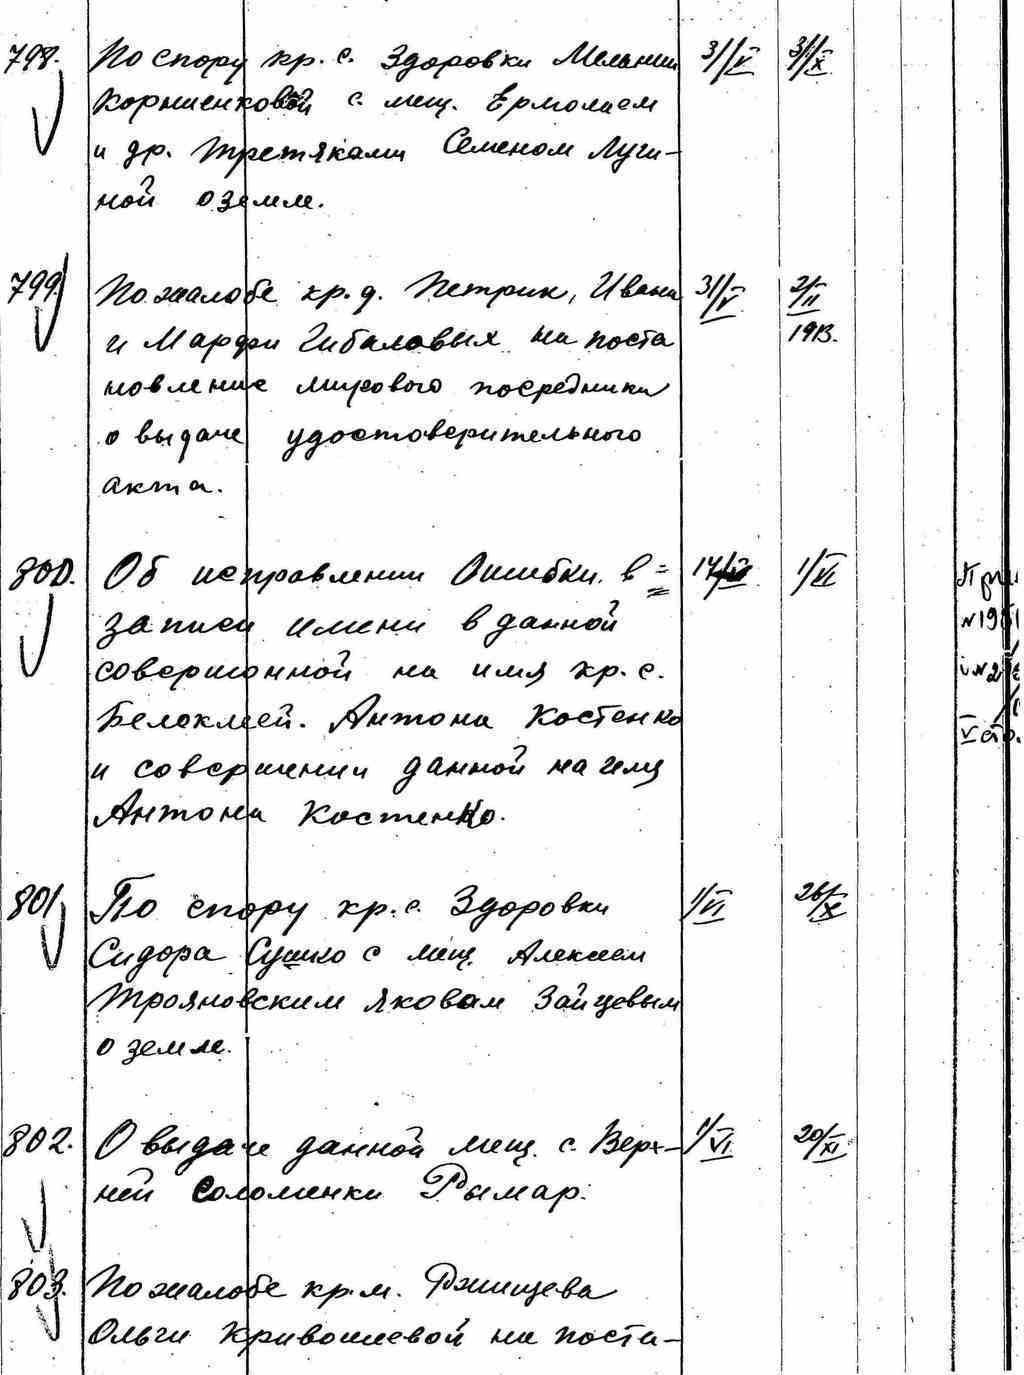 798. По спору кр. с. Здоровки Мелании 31/V 31/X
Корниенковой с мещ. Ермолаем
и др. Третяками Семеном Луги-
ной о земле.
799. По жалобе кр. д. Петрик, Ивана 31/V 2/II
и Марфы Гибаловых на поста 1913.
новление мирового посредника
о выдаче удостоверительного
акта.
800. Об исправлении Ошибки в = 14/IV 1/VI
записи имени в данной
совершонной на имя кр. с.
Белоклей. Антона Костенко
и совершении данной на имя
Антона Костенко.
801. По спору кр. с. Здоровки 1/VI 26/X
Сидора Сушко с мещ. Алексеем
Трояновским Яковом Зайцевым
о земле.
802. О выдаче данной мещ. с. Верх- 1/VI. 20/XI
ней Соломенки Рымар.
803. По жалобе кр. м. Ржищева
Ольги Кривошеевой на поста-